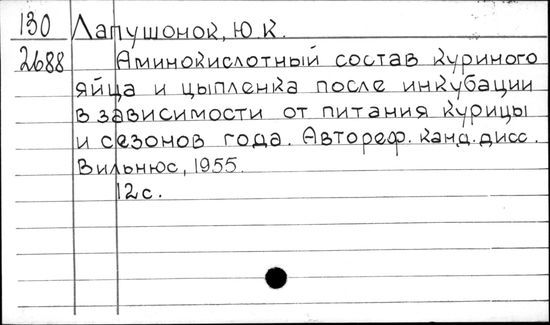 130 Лапушонок, Ю.К.
2688 Аминокислотный состав куриного
яйца и цыпленка после инкубации
в зависимости от питания курицы
и сезонов года. Автореф. канд. дисс.
Вильнюс, 1955.
12 с.